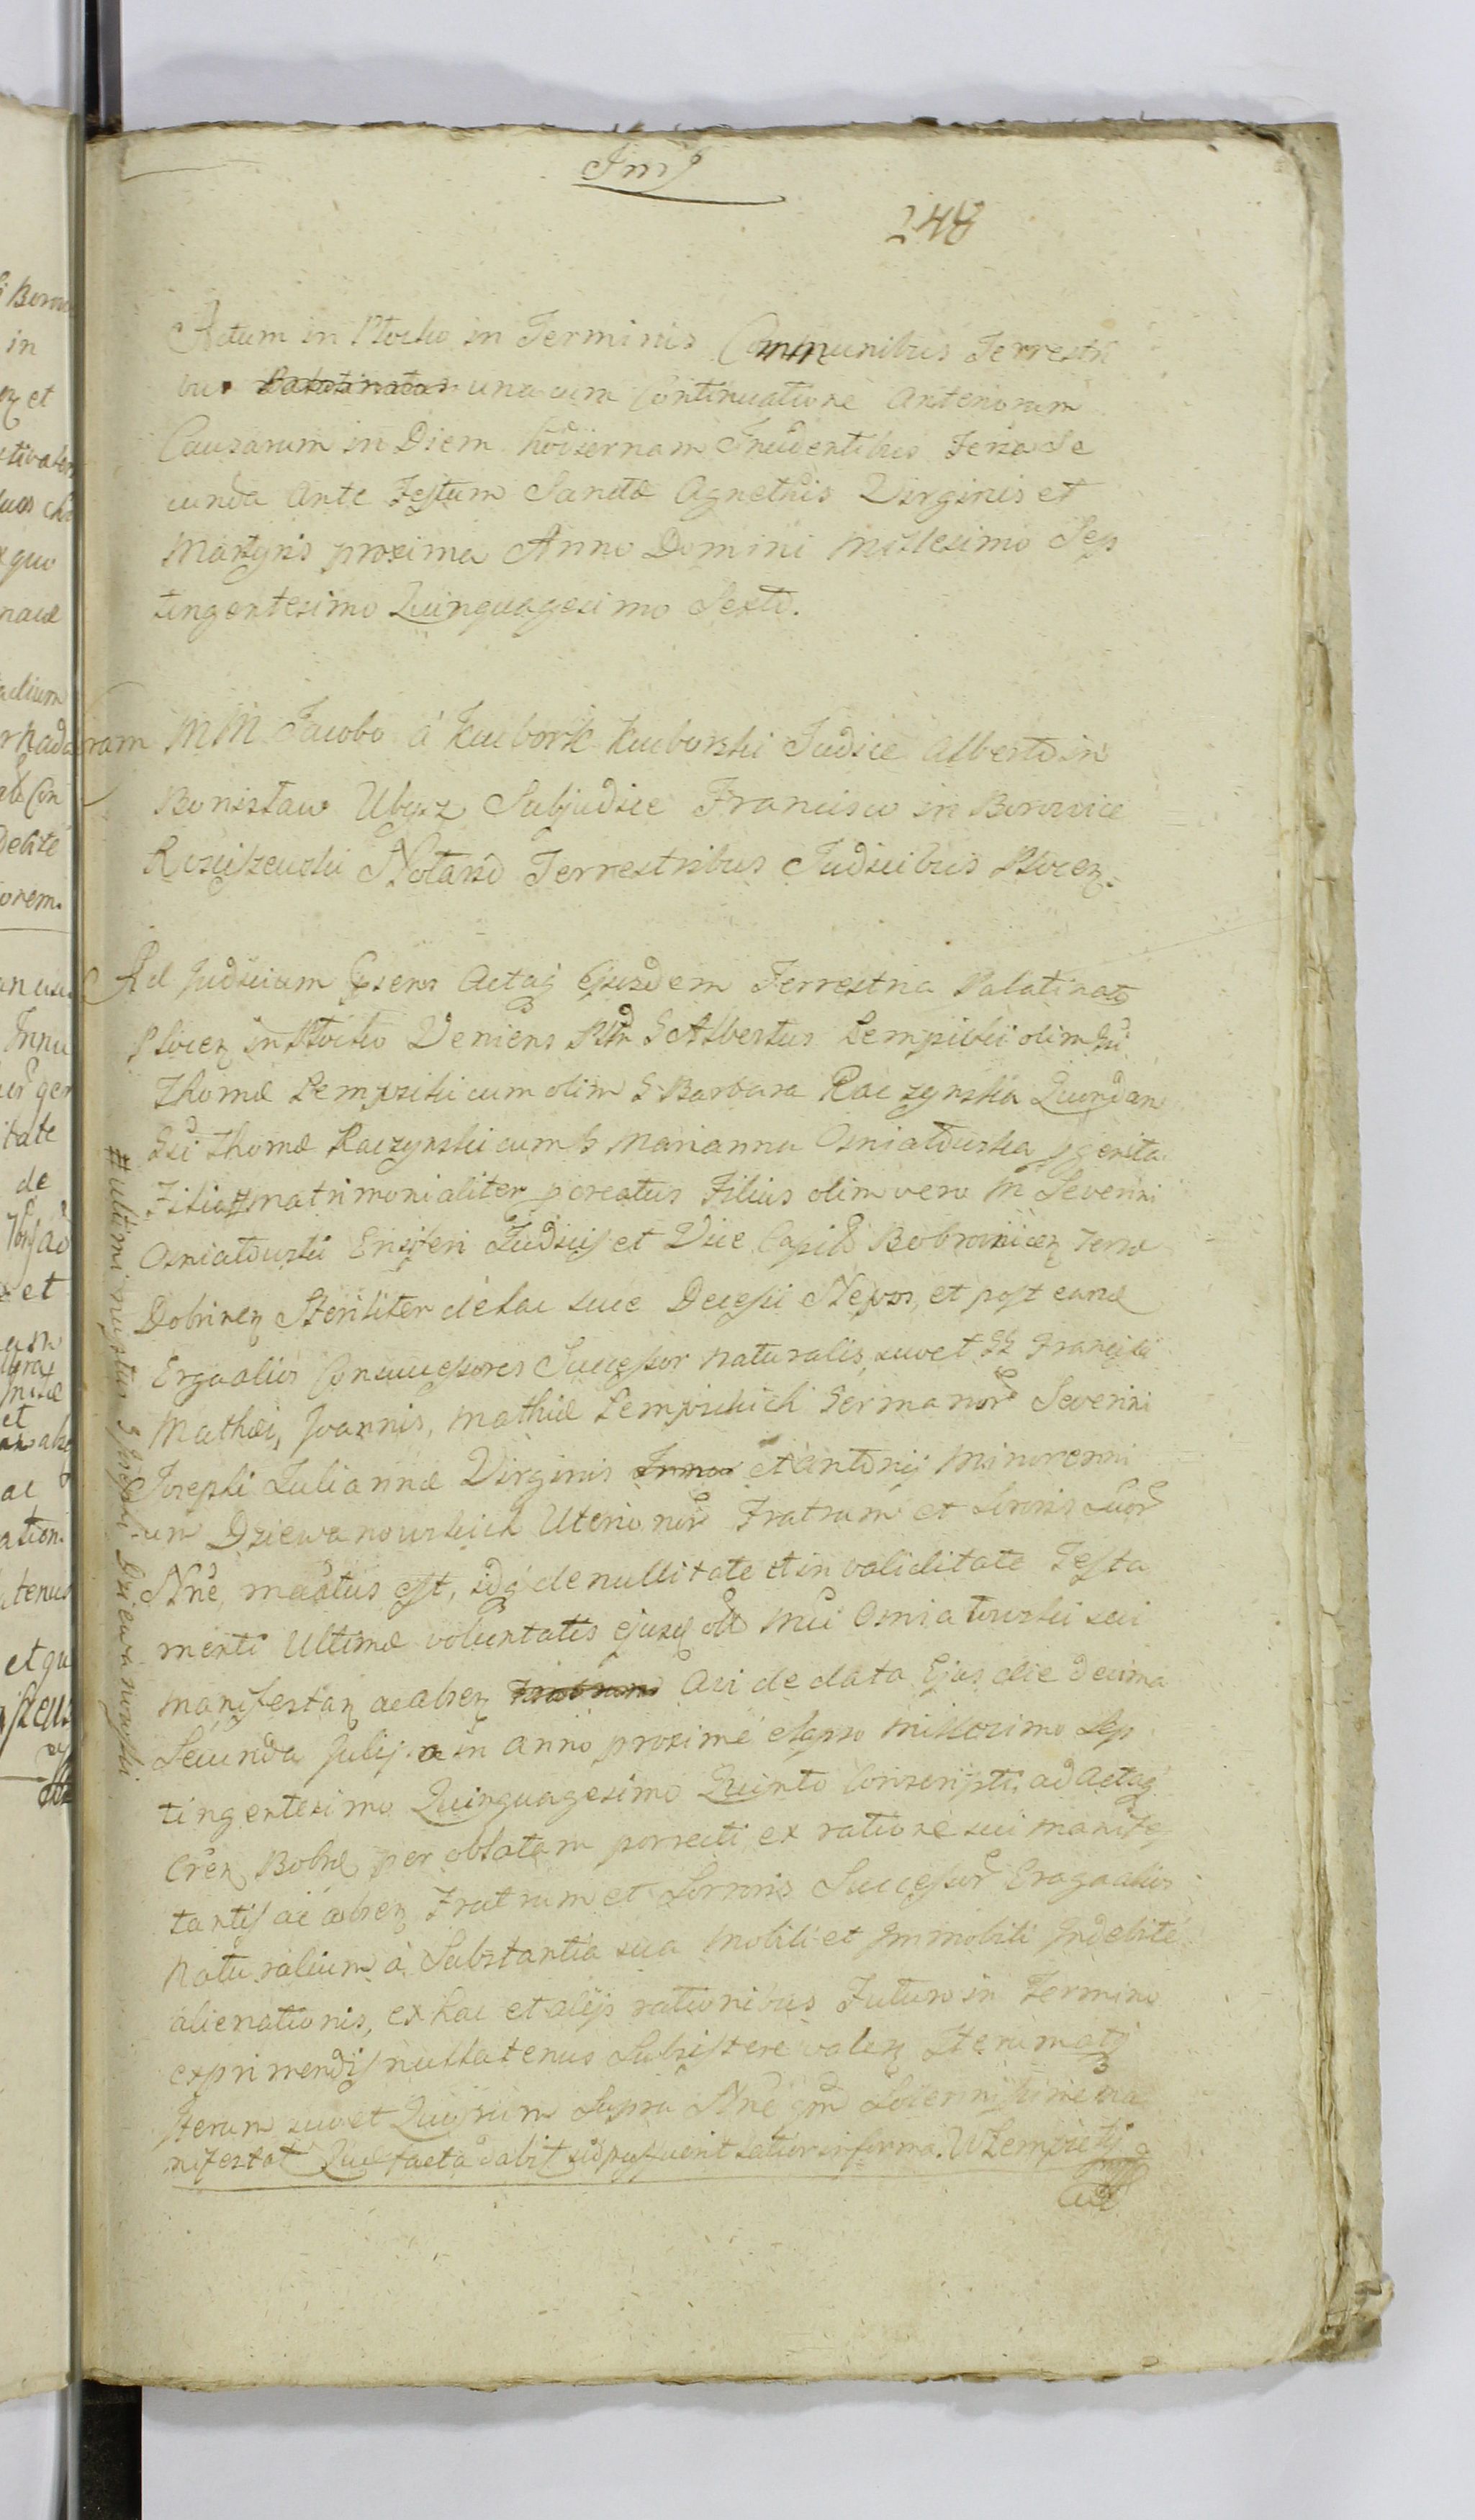 248
Actum in Plocko in Terminis Communibus Terrestri
bus una cum Continuatione Anteriorum
Causarum in Diem hodiernam Incidentibus Feria Se
cunda Ante Festum Sanctæ Agnethis Virginis et
Martyris proxima Anno Domini Millesimo Sep
tingentesimo Quinquagesimo Sexto.
Coram MM Jacobo à Kuborski Judice Alberto in
Bonisław Ubysz Subjudice Francisco in Borowice
Rosciszewski Notario Terrestribus Judicibus Plocen
Ad Judicium Actaq ejusdem Terrestria Palatinatus
Plocen in Plocko Veniens G Albertus Lempicki olim
Thomæ Lempicki cum olim G Barbara Raczynska Quondam
Thomæ Raczynski cum G Marianna Osniatowska genita
Filia # matrimonialiter pcreatus Filius olim vero M Severini
Osniatowski Ensiferi Judicis et Vice Capit Bobrownicen Terræ
Dobrinen Steriliter de hac luce Decessi Nepos, et post eund
Ergo alios Consuccessores Successor naturalis, suo et GG Francisci
Mathæi, Joannis, Mathiæ Lempickich Germanor Severini
Josephi Juliannæ Virginis et Antonij Minorenni
um Dziewanowskich Uterinor Fratrum et Sororis Suor
Nne, mactus est, idq de nullitate et invaliditate Testa
menti Ultimæ voluntatis ejusd olim Mci Osniatowski sui
manifestan ac absen Avi de data Ejus die decima
Secunda Julij in anno proxime elapso millesimo Sep
tingentesimo Quinquagesimo Quinto Conscripti, ad Acta
Cren Bobr per oblatam porrecti ex ratione sui manifes
tantis ac absen Fratrum et Sororis Successor Ergo alios
Naturalium à Substantia sua Mobili et Immobili Indebite
alienationis, ex hac et alijs rationibus Futuro in Termino
exprimendis nullatenus Subsistere valen Iterum atq
Iterum suo et Quorum Supra Nne qm Solennissime ma
nifestat
# ultimi nuptus G Josephi Dziewanowski